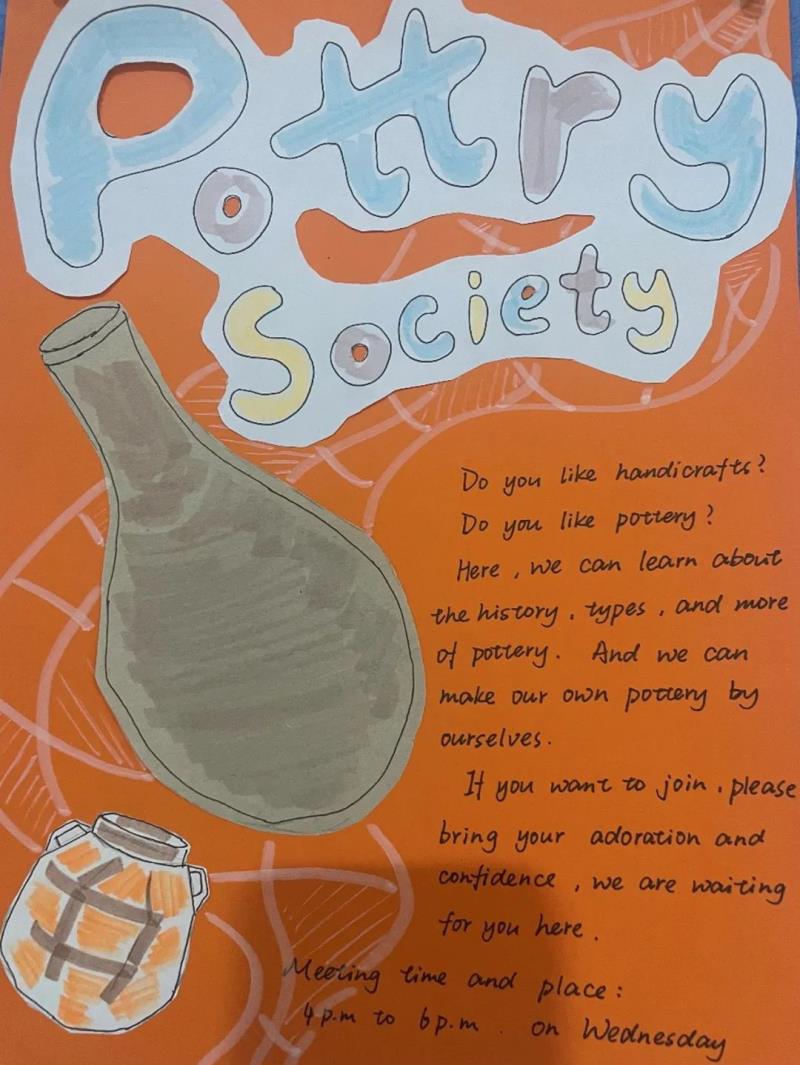 Pottry
Society
Do you like handicrafts?
Do you like pottery?
Here, we can learn about
the history, types, and more
of pottery. And we can
make our own pottery by
ourselves.
If you want to join, please
bring your adoration and
confidence, we are waiting
for you here.
Meeting time and place:
4 p.m to 6 p.m. on Wednesday